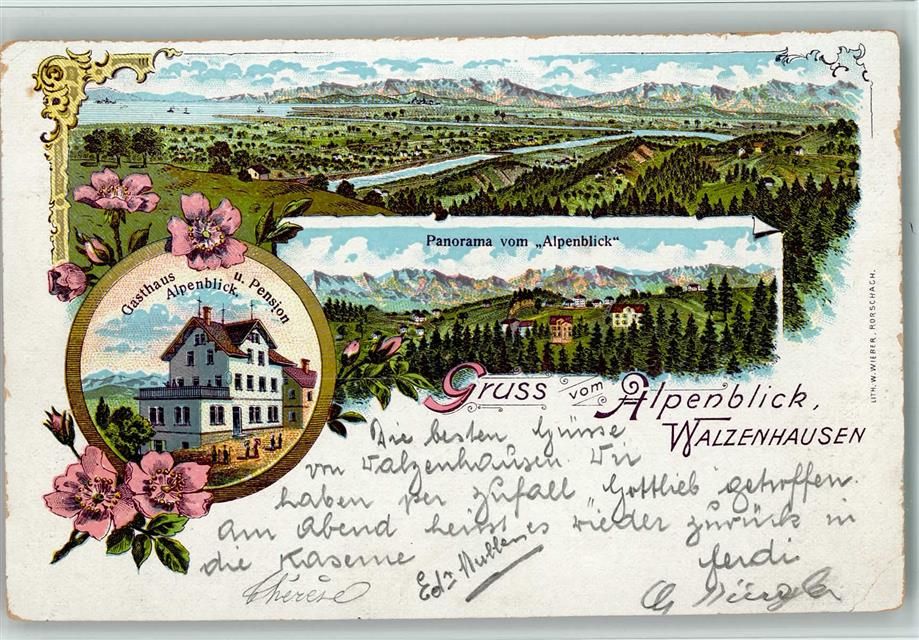 Panorama vom „Alpenblick“
Gasthaus u. Pension
Alpenblick.
LITH. W. WIEBER, RORSCHACH.
Gruss vom Alpenblick,
WALZENHAUSEN
Die besten Grüsse
von Walzenhausen. Wir
haben per Zufall „Gottlieb“ getroffen.
Am Abend heisst es wieder zurück in
die Kaserne
ferdi
Thérèse